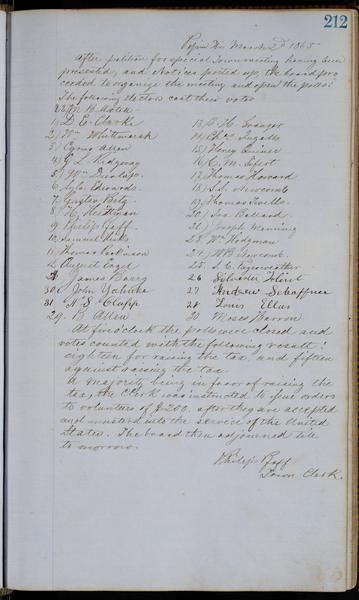 212
Pepin Wis March 2d 1865
After petition for special Town meeting having been
presented, and Notices posted up, the board pro
ceeded to organize the meeting and open the polls:
The following electors cast their votes
1) D. E. Clark
2) Wm Whitmarsh
3) Cyrus Allen
4) G L Ridgeway
5) Wm Dunlap
6) Edwards
7) Gustav
8) H.
9 Philip Pfaff
10) Samuel Hicks
11) Thomas
12 August
James Barry
30) John
31 N. S. Clapp
29. B. Allen
13) H. Granger
14) Chas
15) Henry Quiner
16) C. M.
17) Thomas Howard
18) S. L. Newcomb
19) Thomas
20) Ira Ballard
21) Joseph Manning
23 Wm Hodgman
24) W B Newcomb
25. S. C. Fayerweather
26 Sylvester
27 Andrew Schaffner
28 Louis Ellus
20 Moses Barron
At five o'clock the polls were closed and
votes counted with the following result:
eighteen for raising the tax, and fifteen
against raising the tax.
A majority being in favor of raising the
tax, the Clerk was instructed to issue orders
to volunteers of $200. after they are accepted
and mustered into the service of the United
States. The board then adjourned till
to morrow.
Philip Pfaff
Town Clerk.